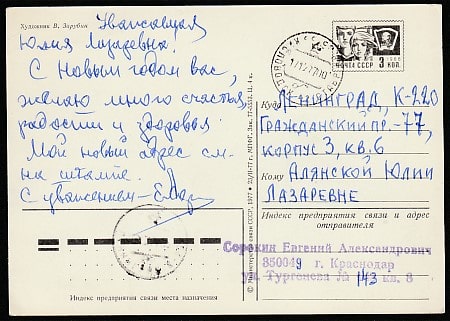 Художник В. Зарубин
Уважаемая
Юлия Лазаревна.
С Новым годом вас,
желаю много счастья
радости и здоровья
Мой новый адрес см-
на штампе.
С уважением-
© Министерство связи СССР, 1977
ПОЧТА СССР
3 КОП.
Куда ЛЕНИНГРАД, К-220
ГРАЖДАНСКИЙ ПР.-77,
КОРПУС 3, КВ. 6
Кому АЛЯНСКОЙ ЮЛИИ
ЛАЗАРЕВНЕ
Индекс предприятия связи и адрес
отправителя
Сорокин Евгений Александрович
350049 г. Краснодар
ул. Тургенева № 143 кв. 8
Индекс предприятия связи места назначения